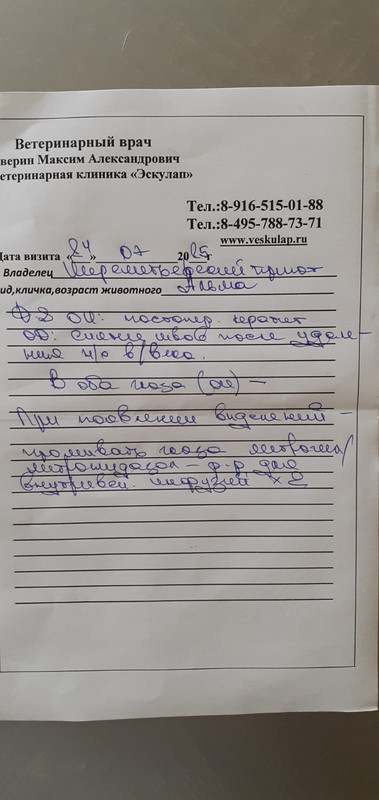 Ветеринарный врач
верин Максим Александрович
етеринарная клиника «Эскулап»
Тел.:8-916-515-01-88
Тел.:8-495-788-73-71
www.veskulap.ru
Дата визита «24» 07 2025 г
Владелец Шереметьевский приют
ид,кличка,возраст животного Альма
DS OU: постопер. кератит
OD: снятие швов после удале-
ния н/о в/века.
В оба глаза (OU) —
При появлении выделений —
промывать глаза
метронидазол - р-р для
внутривен. инфузий х 2